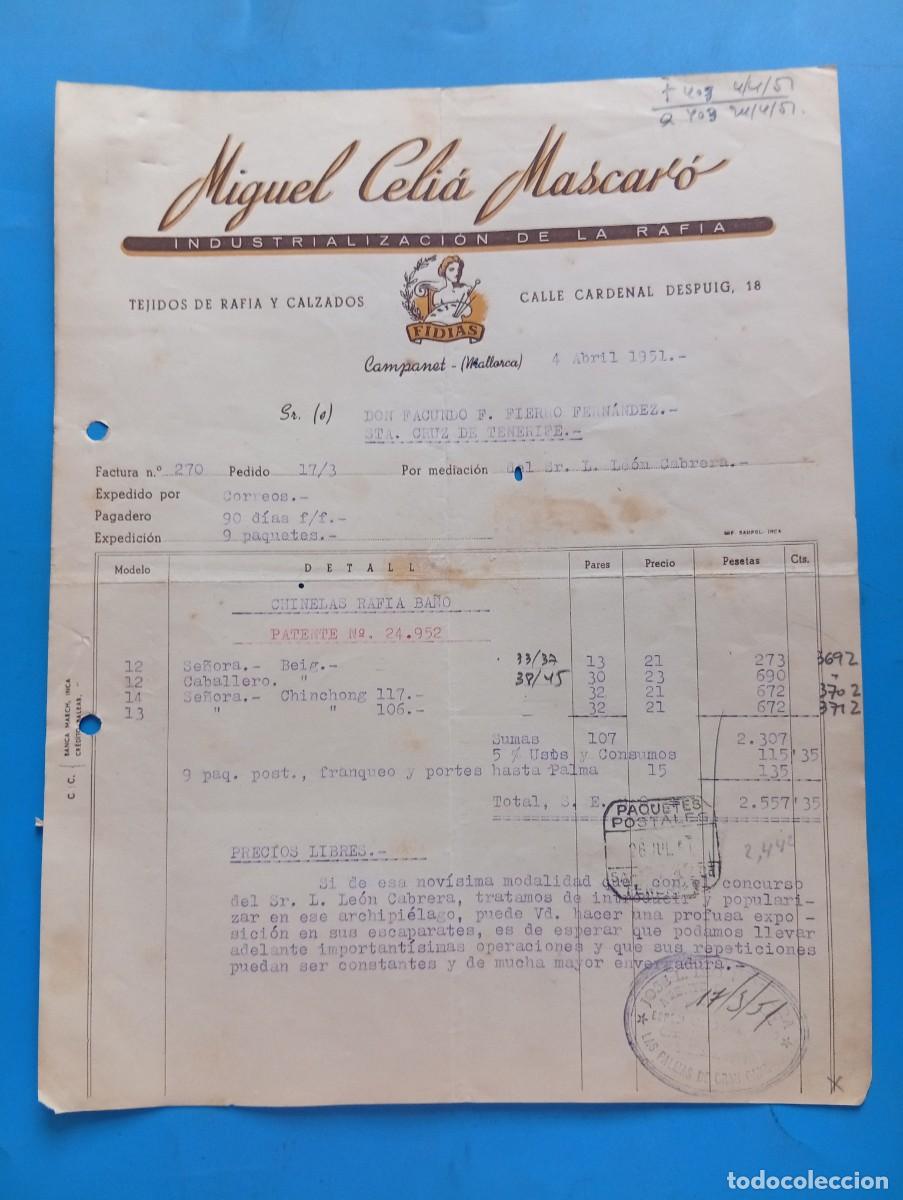 4/4/51
Miguel Celiá Mascaró
INDUSTRIALIZACIÓN DE LA RAFIA
TEJIDOS DE RAFIA Y CALZADOS
CALLE CARDENAL DESPUIG, 18
FIDIAS
Campanet - (Mallorca) 4 Abril 1951.-
Sr. (o) DON FACUNDO F. FIERRO FERNÁNDEZ.-
STA. CRUZ DE TENERIFE.-
Factura n.º 270 Pedido 17/3 Por mediación del Sr. L. León Cabrera.-
Expedido por Correos.-
Pagadero 90 días f/f.-
Expedición 9 paquetes.-
IMP. SAMPOL. INCA
Modelo DETALL Pares Precio Pesetas Cts.
CHINELAS RAFIA BAÑO
PATENTE Nº. 24.952
12 Señora.- Beig.- 33/37 13 21 273 3692
12 Caballero. " 38/45 30 23 690 "
14 Señora.- Chinchong 117.- 32 21 672 3702
13 " " 106.- 32 21 672 3712
Sumas 107 2.307
5 % Usos y Consumos 115'35
9 paq. post., franqueo y portes hasta Palma 15 135
Total, S. E. 2.557'35
C/C. BANCA MARCH, INCA
CRÉDITO BALEAR, -
PAQUETES
POSTALES
PRECIOS LIBRES.-
Si de esa novísima modalidad que, con el concurso
del Sr. L. León Cabrera, tratamos de introducir y populari-
zar en ese archipiélago, puede Vd. hacer una profusa expo-
sición en sus escaparates, es de esperar que podamos llevar
adelante importantísimas operaciones y que sus repeticiones
puedan ser constantes y de mucha mayor envergadura.-
17/5/51
LAS PALMAS DE GRAN
todocoleccion